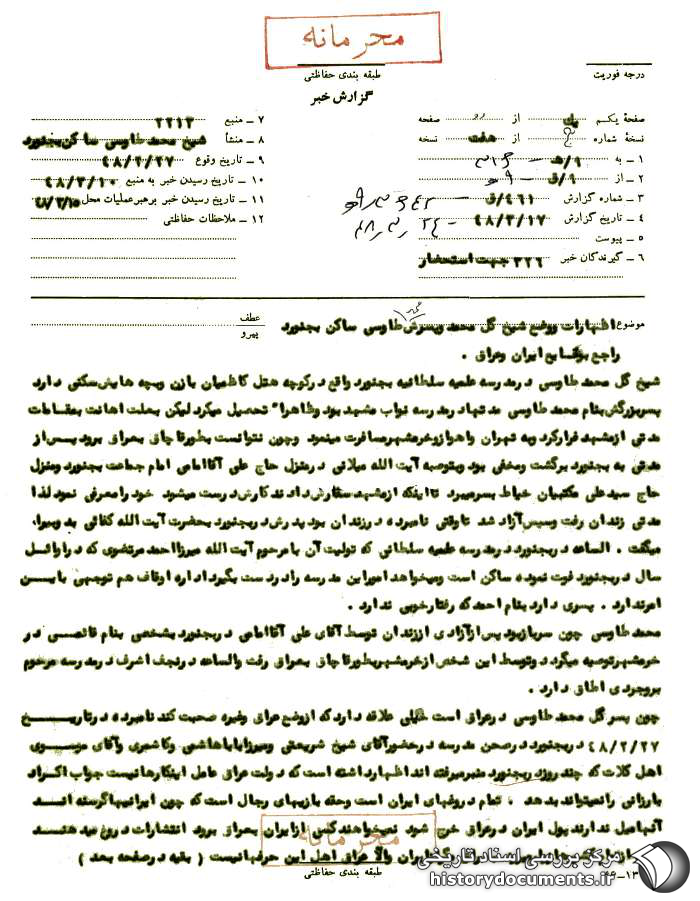 محرمانه
طبقه بندی حفاظتی
درجه فوریت
گزارش خبر
صفحهٔ یکم یک از دو صفحه
نسخهٔ شماره از هفت نسخه
۱ – به ۹/هـ - ۳۱۶
۲ – از ۹/ق
۳ – شماره گزارش ۴۶۱/ق
۴ – تاریخ گزارش ۴۸/۳/۱۷ - ۴۸٫۳٫۲۴
۵ – پیوست
۶ – گیرندگان خبر ۳۲۶ جهت استحضار
۷ – منبع ۲۲۱۳
۸ – منشأ شیخ محمد طاوسی ساکن بجنورد
۹ – تاریخ وقوع ۴۸/۲/۲۷
۱۰ – تاریخ رسیدن خبر به منبع ۴۸/۳/۱۰
۱۱ – تاریخ رسیدن خبر برهبر عملیات محل ۴۸/۳/۱۵
۱۲ – ملاحظات حفاظتی
موضوع اظهارات ووضع شیخ گل محمد وپسرش محمد طاوسی ساکن بجنورد
عطف
پیرو
راجع بوقایع ایران وعراق .
شیخ گل محمد طاوسی در مدرسه علمیه سلطانیه بجنورد واقع در کوچه هتل کاظمیان با زن وبچه هایش سکنی دارد
پسر بزرگش بنام محمد طاوسی مدتها در مدرسه نواب مشهد بود وظاهرا" تحصیل میکرد لیکن بعلت اهانت بمقامات
مدتی از مشهد فرار کرد وبه تهران واهواز وخرمشهر مسافرت مینمود وچون نتوانست بطور قاچاق بعراق برود پس از
مدتی به بجنورد برگشت ومخفی بود وبتوصیه آیت الله میلانی در منزل حاج علی آقا امامی امام جماعت بجنورد ومنزل
حاج سید علی مکتبیان خیاط بسر میبرد تا اینکه از مشهد سفارش دادند کارش درست میشود خود را معرفی نمود لذا
مدتی زندان رفت وسپس آزاد شد تا وقتی نامبرده در زندان بود پدرش در بجنورد بحضرت آیت الله کفائی بد وبیراه
میگفت . الساعه در بجنورد در مدرسه علمیه سلطانی که تولیت آن با مرحوم آیت الله میرزا احمد مرتضوی که در اوائل
سال در بجنورد فوت نموده ساکن است ومیخواهد امور این مدرسه را در دست بگیرد اداره اوقاف هم توجهی باین
امر ندارد . پسری دارد بنام احمد که رفتار خوبی ندارد .
محمد طاوسی چون سرباز بود پس از آزادی از زندان توسط آقای علی آقا امامی در بجنورد بشخصی بنام قائمی در
خرمشهر توصیه میگردد وتوسط این شخص از خرمشهر بطور قاچاق بعراق رفت والساعه در نجف اشرف در مدرسه مرحوم
بروجردی اطاق دارد .
چون پسر گل محمد طاوسی در عراق است خیلی علاقه دارد که از وضع عراق وغیره صحبت کند نامبرده در تاریخ
۴۸/۲/۲۷ در بجنورد در صحن مدرسه در حضور آقای شیخ شریعتی ومیرزا بابا هاشمی وکاشمری وآقای موسوی
اهل کلات که چند روز در بجنورد منبر میرفته اند اظهار داشته است که دولت عراق عامل اینکارها نیست جواب اکراد
بارزانی را نمیتواند بدهد . تمام دروغهای ایران است وحقه بازیهای رجال است که چون ایرانیها گرسنه اند
آنها میل ندارند پول ایران در عراق خرج شود نمیخواهند کسی از ایران بعراق برود انتشارات دروغ میدهند
ایران والا عراق اهل این حرفها نیست ( بقیه در صفحه بعد )
محرمانه
طبقه بندی حفاظتی
مرکز بررسی اسناد تاریخی
historydocuments.ir